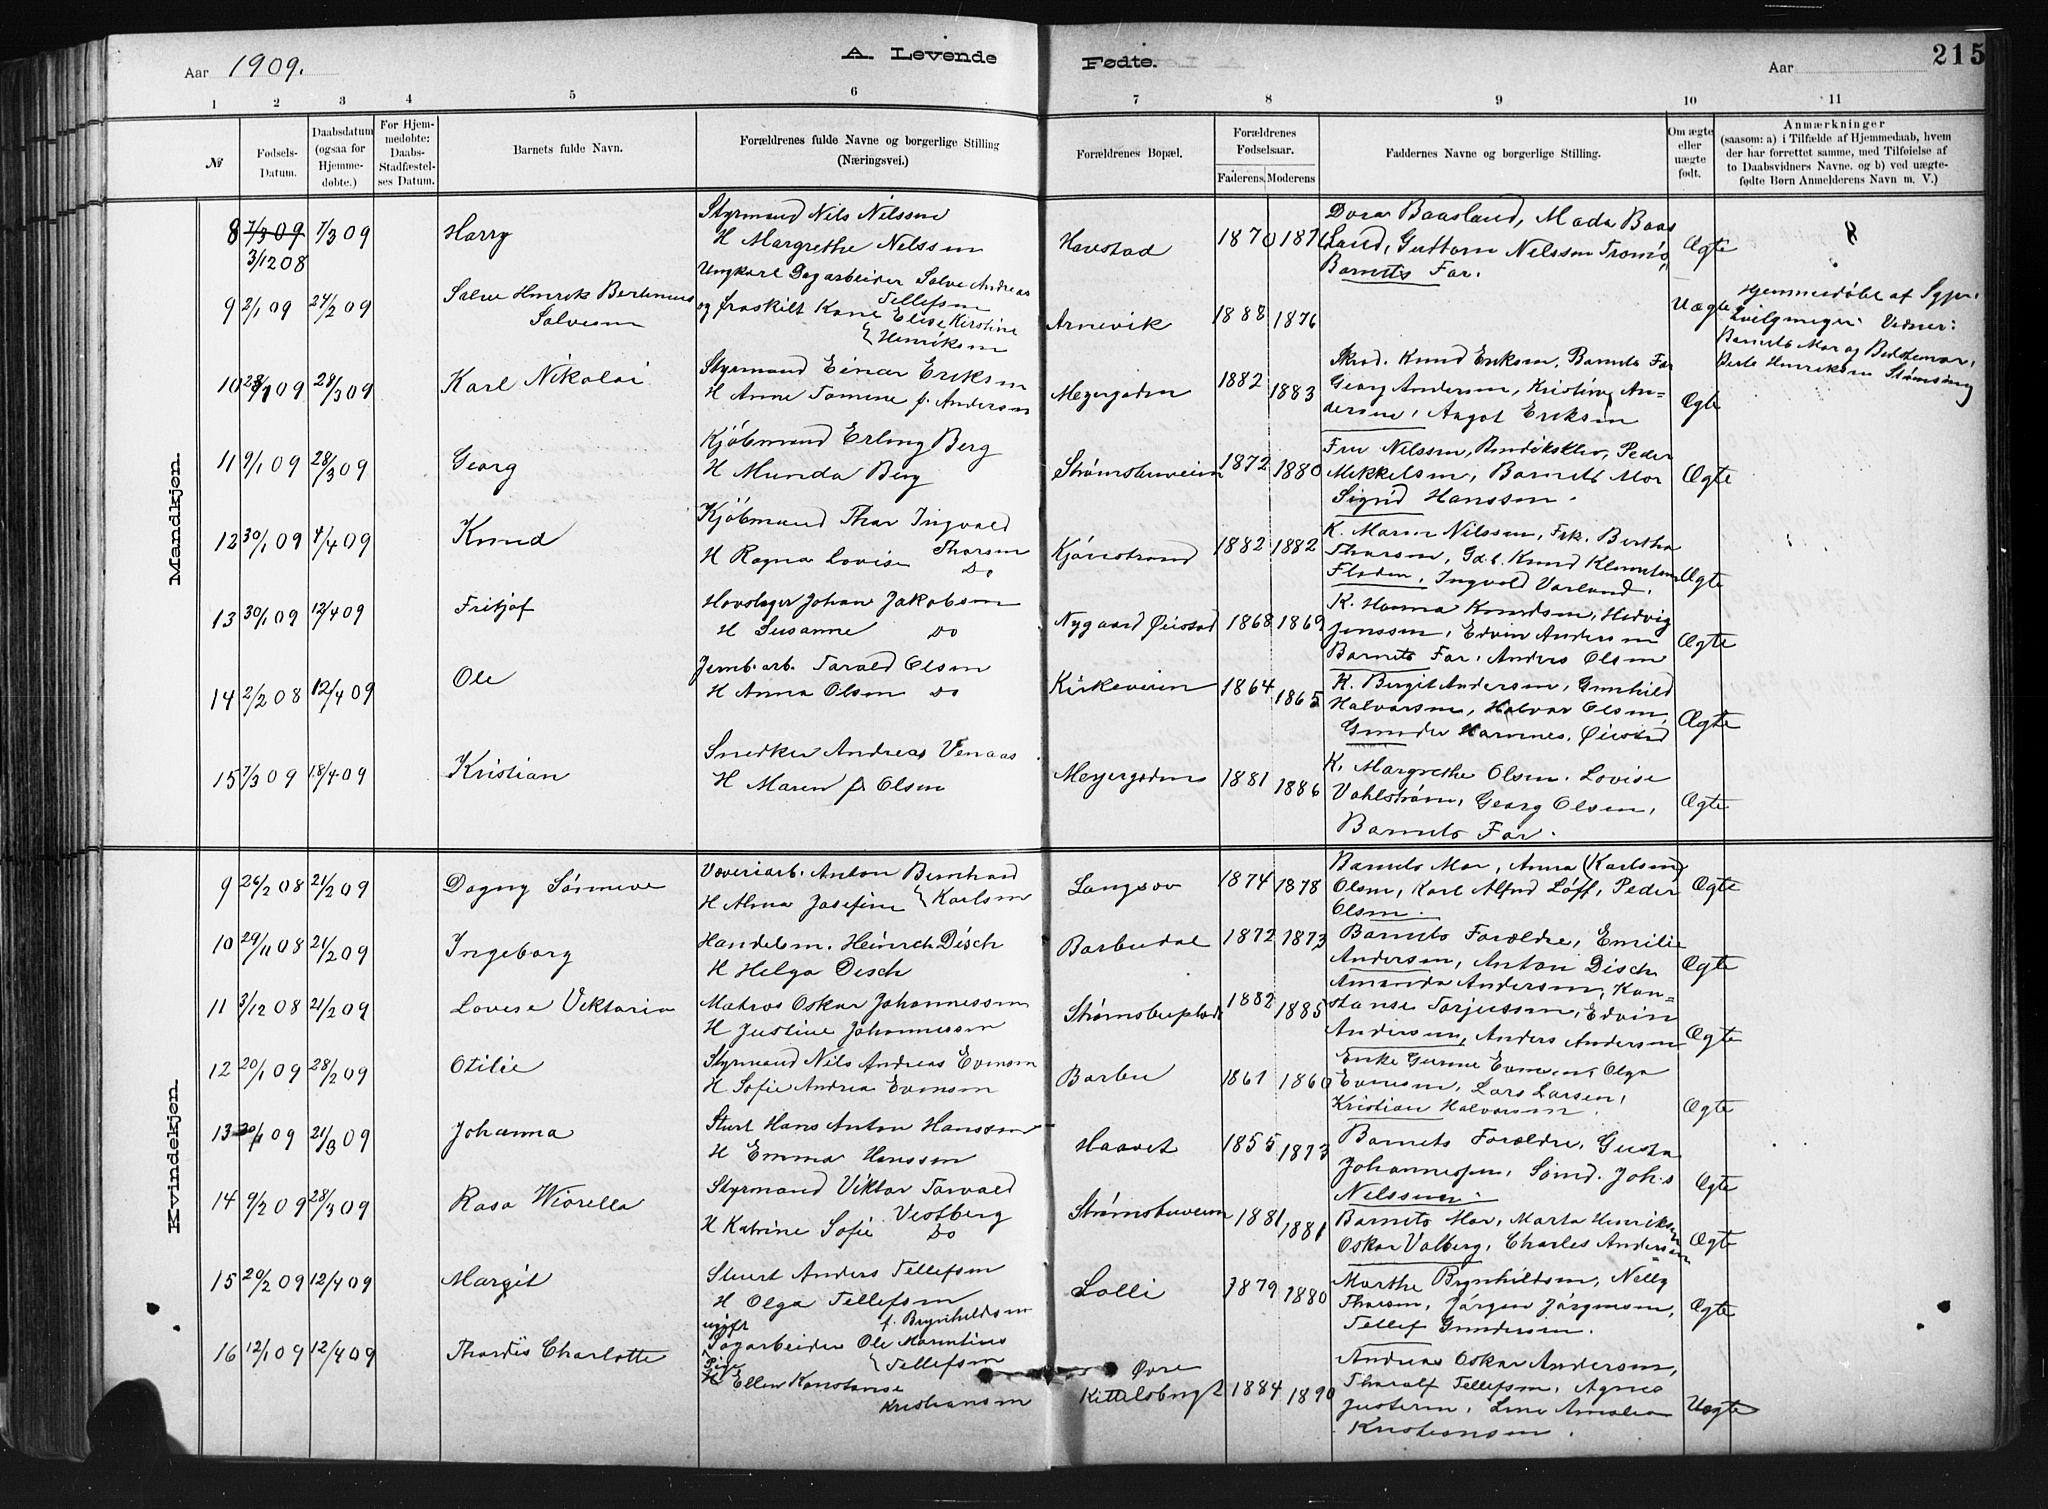 Aar 1909.
A. Levende
Fødte.
Aar
215
1 2 3 4 5 6 7 8 9 10 11
№
Fødsels-
Datum.
Daabsdatum
(ogsaa for
Hjemme-
døbte.)
For Hjem-
medøbte:
Daabs-
Stadfæstel-
ses Datum.
Barnets fulde Navn.
Forældrenes fulde Navne og borgerlige Stilling
(Næringsvei.)
Forældrenes Bopæl.
Forældrenes
Fødselsaar.
Faderens. Moderens
Faddernes Navne og borgerlige Stilling.
Om ægte
eller
uægte
født.
Anmærkninger
(saasom: a) i Tilfælde af Hjemmedaab, hvem
der har forrettet samme, med Tilføielse af
to Daabsvidners Navne. og b) ved uægte-
fødte Børn Anmelderens Navn m. V.)
Mandkjøn.
8 7/3 09 7/3 09 Harry
3/12 08
Styrmand Nils Nilssen
H Margrethe Nilssen
Havstad 1870 1871
Dora Baasland, Mada Baas
land, Guttorm Nilssen Tromø,
Barnets Far.
Ægte 8
9 2/1 09 24/2 09 Salve Henrik Bertinius
Salvesen
Ungkarl Dagarbeider Salve Andreas
Tellefsen
og fraskilt Kone Elise Kirstine
Henriksen
Arnevik 1888 1876
Uægte
Hjemmedøbt af
Vidner:
Barnets Mor og Bedstemor,
Berte Henriksen
10 09 28/3 09 Karl Nikolai
Styrmand Einar Eriksen
H Anne Tomine f. Andersen
Meyergaden 1882 1883
Knud Eriksen, Barnets Far
Georg Andersen, Kristine An-
dersen, Aagot Eriksen
Ægte
11 9/1 09 28/3 09 Georg
Kjøbmand Erling Berg
H Munda Berg
Strømsbuveien 1872 1880
Fru Nilssen, Bendiksklev, Peder
Mikkelsen, Barnets Mor
Sigrid Hanssen.
Ægte
12 30/1 09 4/4 09 Knud
Kjøbmand Thor Ingvald
Thorsen
H Ragna Lovise Do
Kjønstrand 1882 1882
K. Maren Nilssen, Frk. Bertha
Thorsen, Gdb. Knud Klemetsen
Fladen, Ingvald Varland.
Ægte
13 30/1 09 12/4 09 Fritjof
Hovslager Johan Jakobsen
H Susanne Do
Nygaard Øiestad 1868 1869
K. Hanna Knudsen, Hedvig
Jenssen, Edvin Andersen
Barnets Far, Anders Olsen
Ægte
14 2/2 08 12/4 09 Ole
Jernb.arb. Tarald Olsen
H Anna Olsen Do
Kirkeveien 1864 1865
K. Birgit Andersen, Gunhild
Halvorsen, Halvor Olsen,
Gunder Hammes, Øiestad
Ægte
15 7/3 09 18/4 09 Kristian
Snedker Andreas Venaas
H Maren f. Olsen
Meyergaden 1881 1886
K. Margrethe Olsen, Lovise
Vahlstrøm, Georg Olsen,
Barnets Far.
Ægte
Kvindekjøn.
9 26/2 08 21/2 09 Dagny Sørineve
Væveriarb. Anton Bernhard
H Alma Josefine Karlsen
Langsæv 1874 1878
Barnets Mor, Anna (Karlsen)
Olsen, Karl Alfred Løff, Peder
Olsen.
Ægte
10 29/11 08 21/2 09 Ingeborg
Handelsm. Heinrich Disch
H Helga Disch
Barbudal 1872 1873
Barnets Forældre, Emilie
Andersen, Anton Disch
Ægte
11 3/12 08 21/2 09 Lovise Viktoria
Matros Oskar Johannessen
H Justine Johannessen
Strømsbuplads 1882 1885
Amanda Andersen, Kon-
stanse Torjussen, Edvin
Andersen, Anders Andersen
Ægte
12 20/1 09 28/2 09 Otilie
Styrmand Nils Andreas Evensen
H Sofie Andrea Evensen
Barbu 1861 1860
Enke Gurine Evensen, Olga
Evensen, Lars Larsen,
Kristian Halvorsen.
Ægte
13 09 21/3 09 Johanna
Stuert Hans Anton Hanssen
H Emma Hanssen
Haavet 1855 1873
Barnets Forældre, Gusta
Johannessen, Sømd. Johs
Nilssen.
Ægte
14 9/2 09 28/3 09 Rasa Wiorella
Styrmand Viktor Torvald
Vestberg
H Katrine Sofie Do
Strømsbuveien 1881 1881
Barnets Mor, Marta Henriksen
Oskar Valberg, Charles Andersen
Ægte
15 20/2 09 12/4 09 Margit
Stuert Anders Tellefsen
H Olga Tellefsen
f. Brynhildsen
Lolli 1879 1880
Marthe Brynhildsen, Nelly
Thorsen, Jørgen Jørgensen,
Tellef Gundersen.
Ægte
16 12/1 09 12/4 09 Thordis Charlotte
ugift
Dagarbeider Ole Martinius
Tellefsen
Pige
H Ellen Konstanse
Kristiansen
Øvre
Kittelsbugt 1884 1890
Andreas Oskar Andersen,
Tharalf Tellefsen, Agnes
Justesen, Line Amalia
Kristiansen.
Uægte